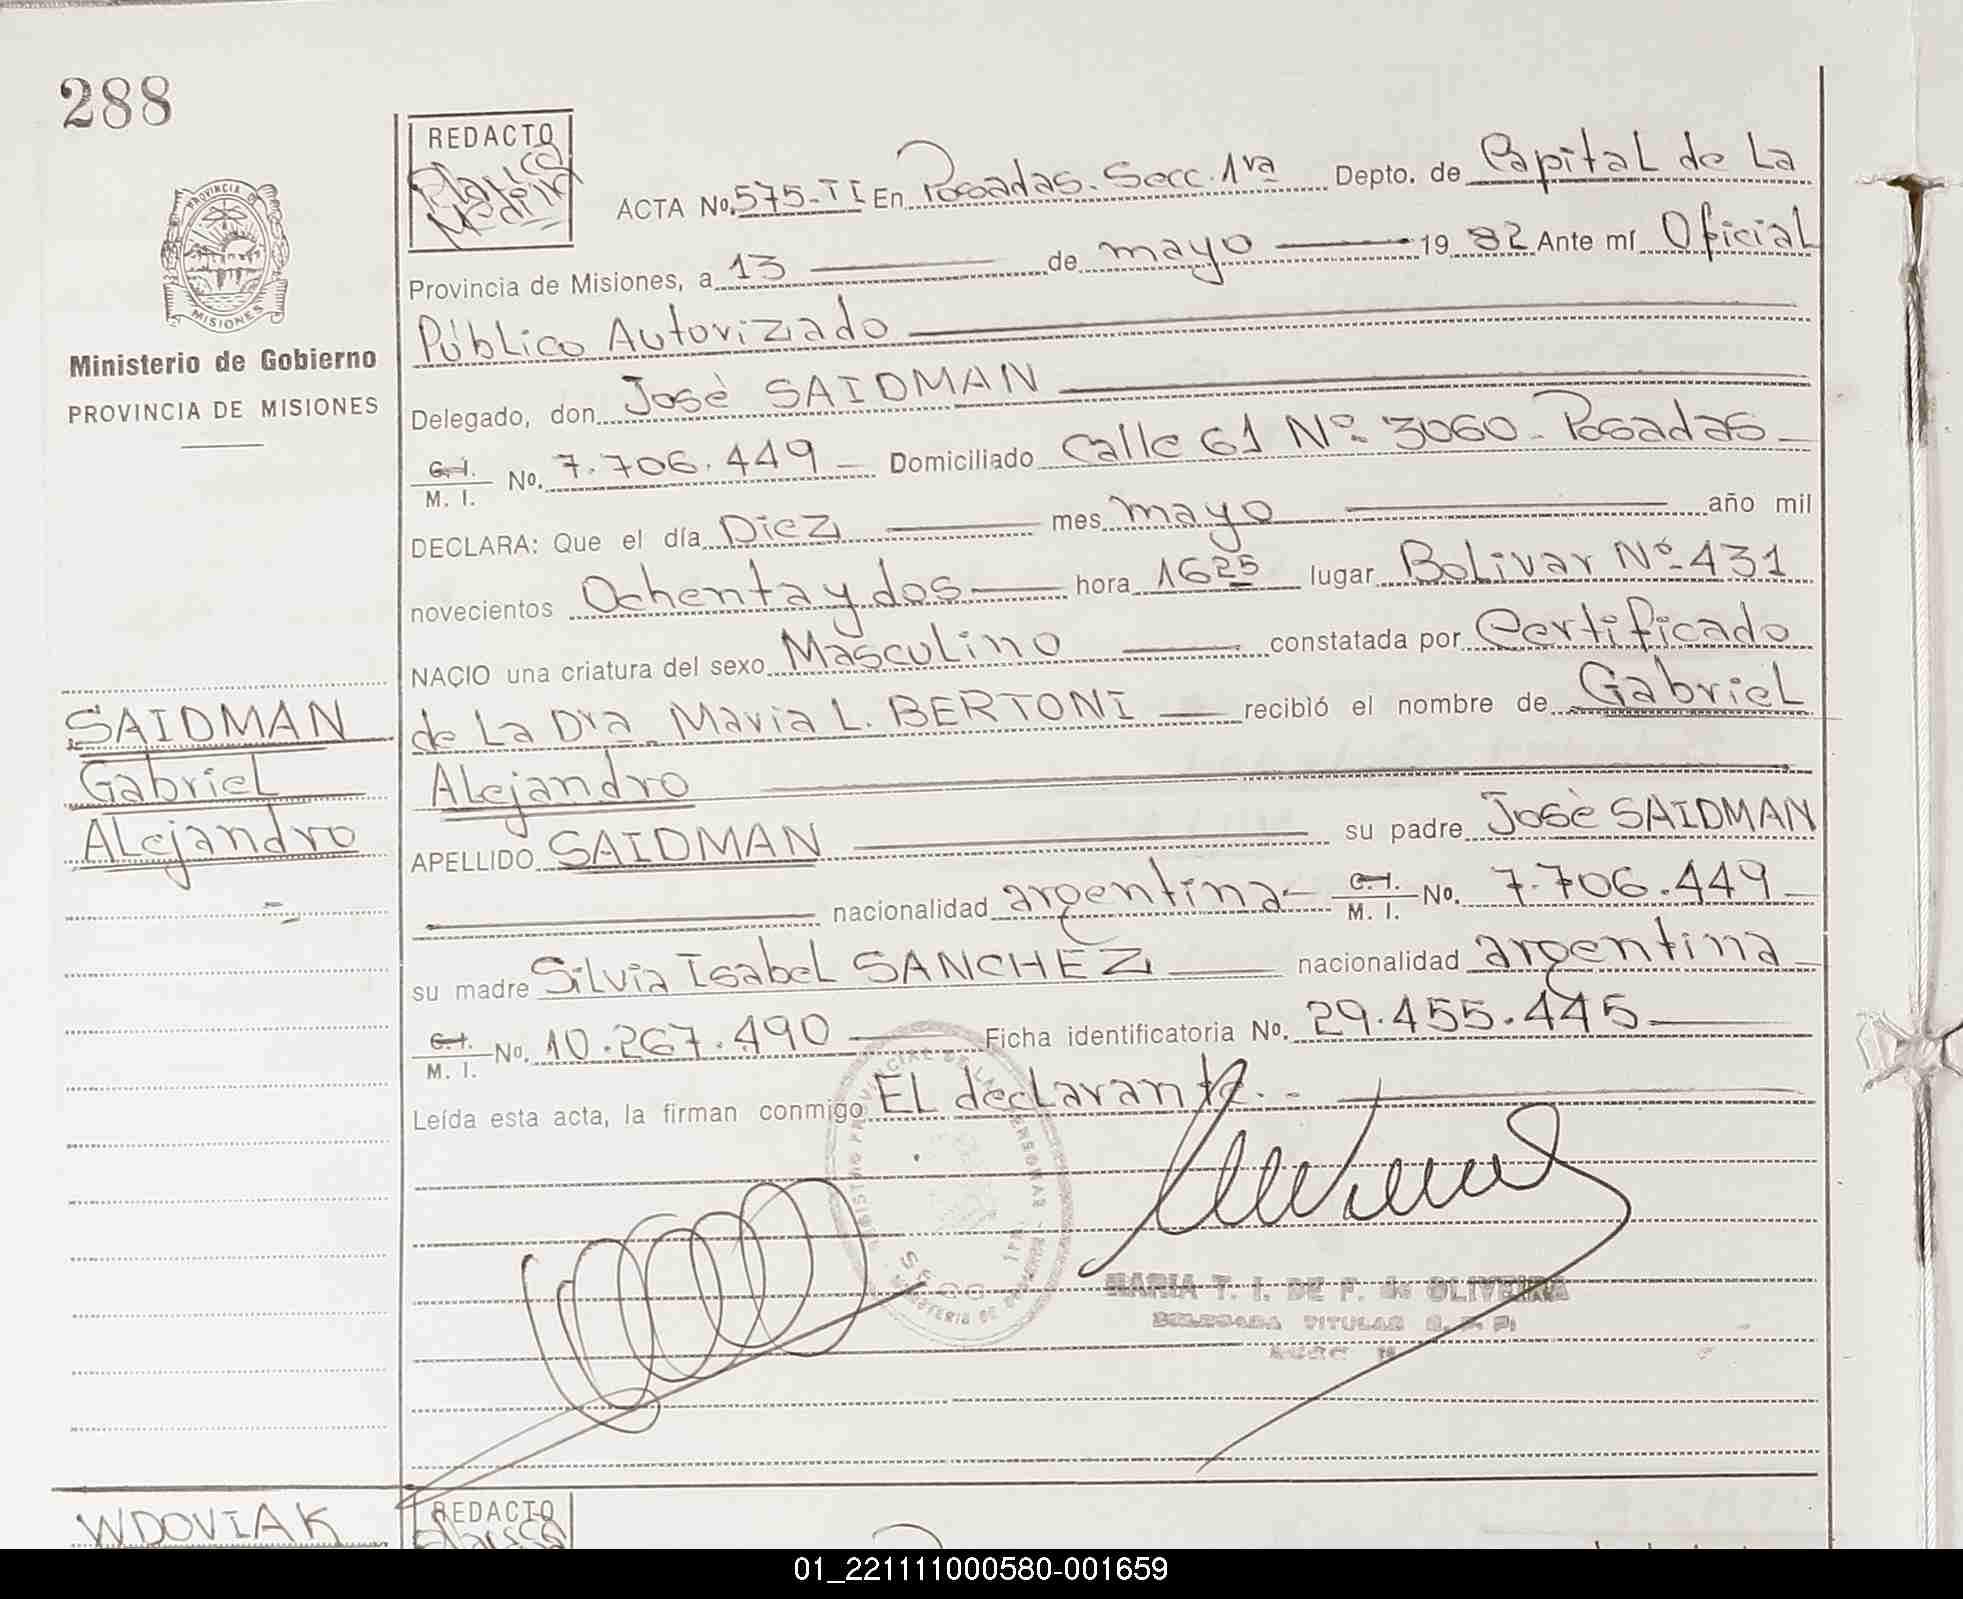 288
REDACTO
ACTA No. 575-TI En Posadas. Secc. 1ra Depto. de Capital de La
Provincia de Misiones, a 13 de mayo 19 82 Ante mí Oficial
Público Autorizado
PROVINCIA DE
MISIONES
Ministerio de Gobierno
PROVINCIA DE MISIONES
Delegado, don José SAIDMAN
C. I.
M. I. No. 7.706.449 Domiciliado Calle 61 Nº 3060 - Posadas
DECLARA: Que el día Diez mes mayo año mil
novecientos Ochenta y dos hora 1625 lugar Bolivar Nº 431
NACIO una criatura del sexo Masculino constatada por Certificado
de La Dra. Maria L. BERTONI recibió el nombre de Gabriel
Alejandro
SAIDMAN
Gabriel
Alejandro
APELLIDO SAIDMAN su padre José SAIDMAN
nacionalidad argentina - C. I.
M. I. No. 7.706.449
su madre Silvia Isabel SANCHEZ nacionalidad argentina
C. I.
M. I. No. 10.267.490 Ficha identificatoria No. 29.455.445
Leída esta acta, la firman conmigo EL declarante.-
MARIA T. I. DE F. de OLIVEIRA
DELEGADA TITULAR
WDOVIAK
REDACTO
01_221111000580-001659